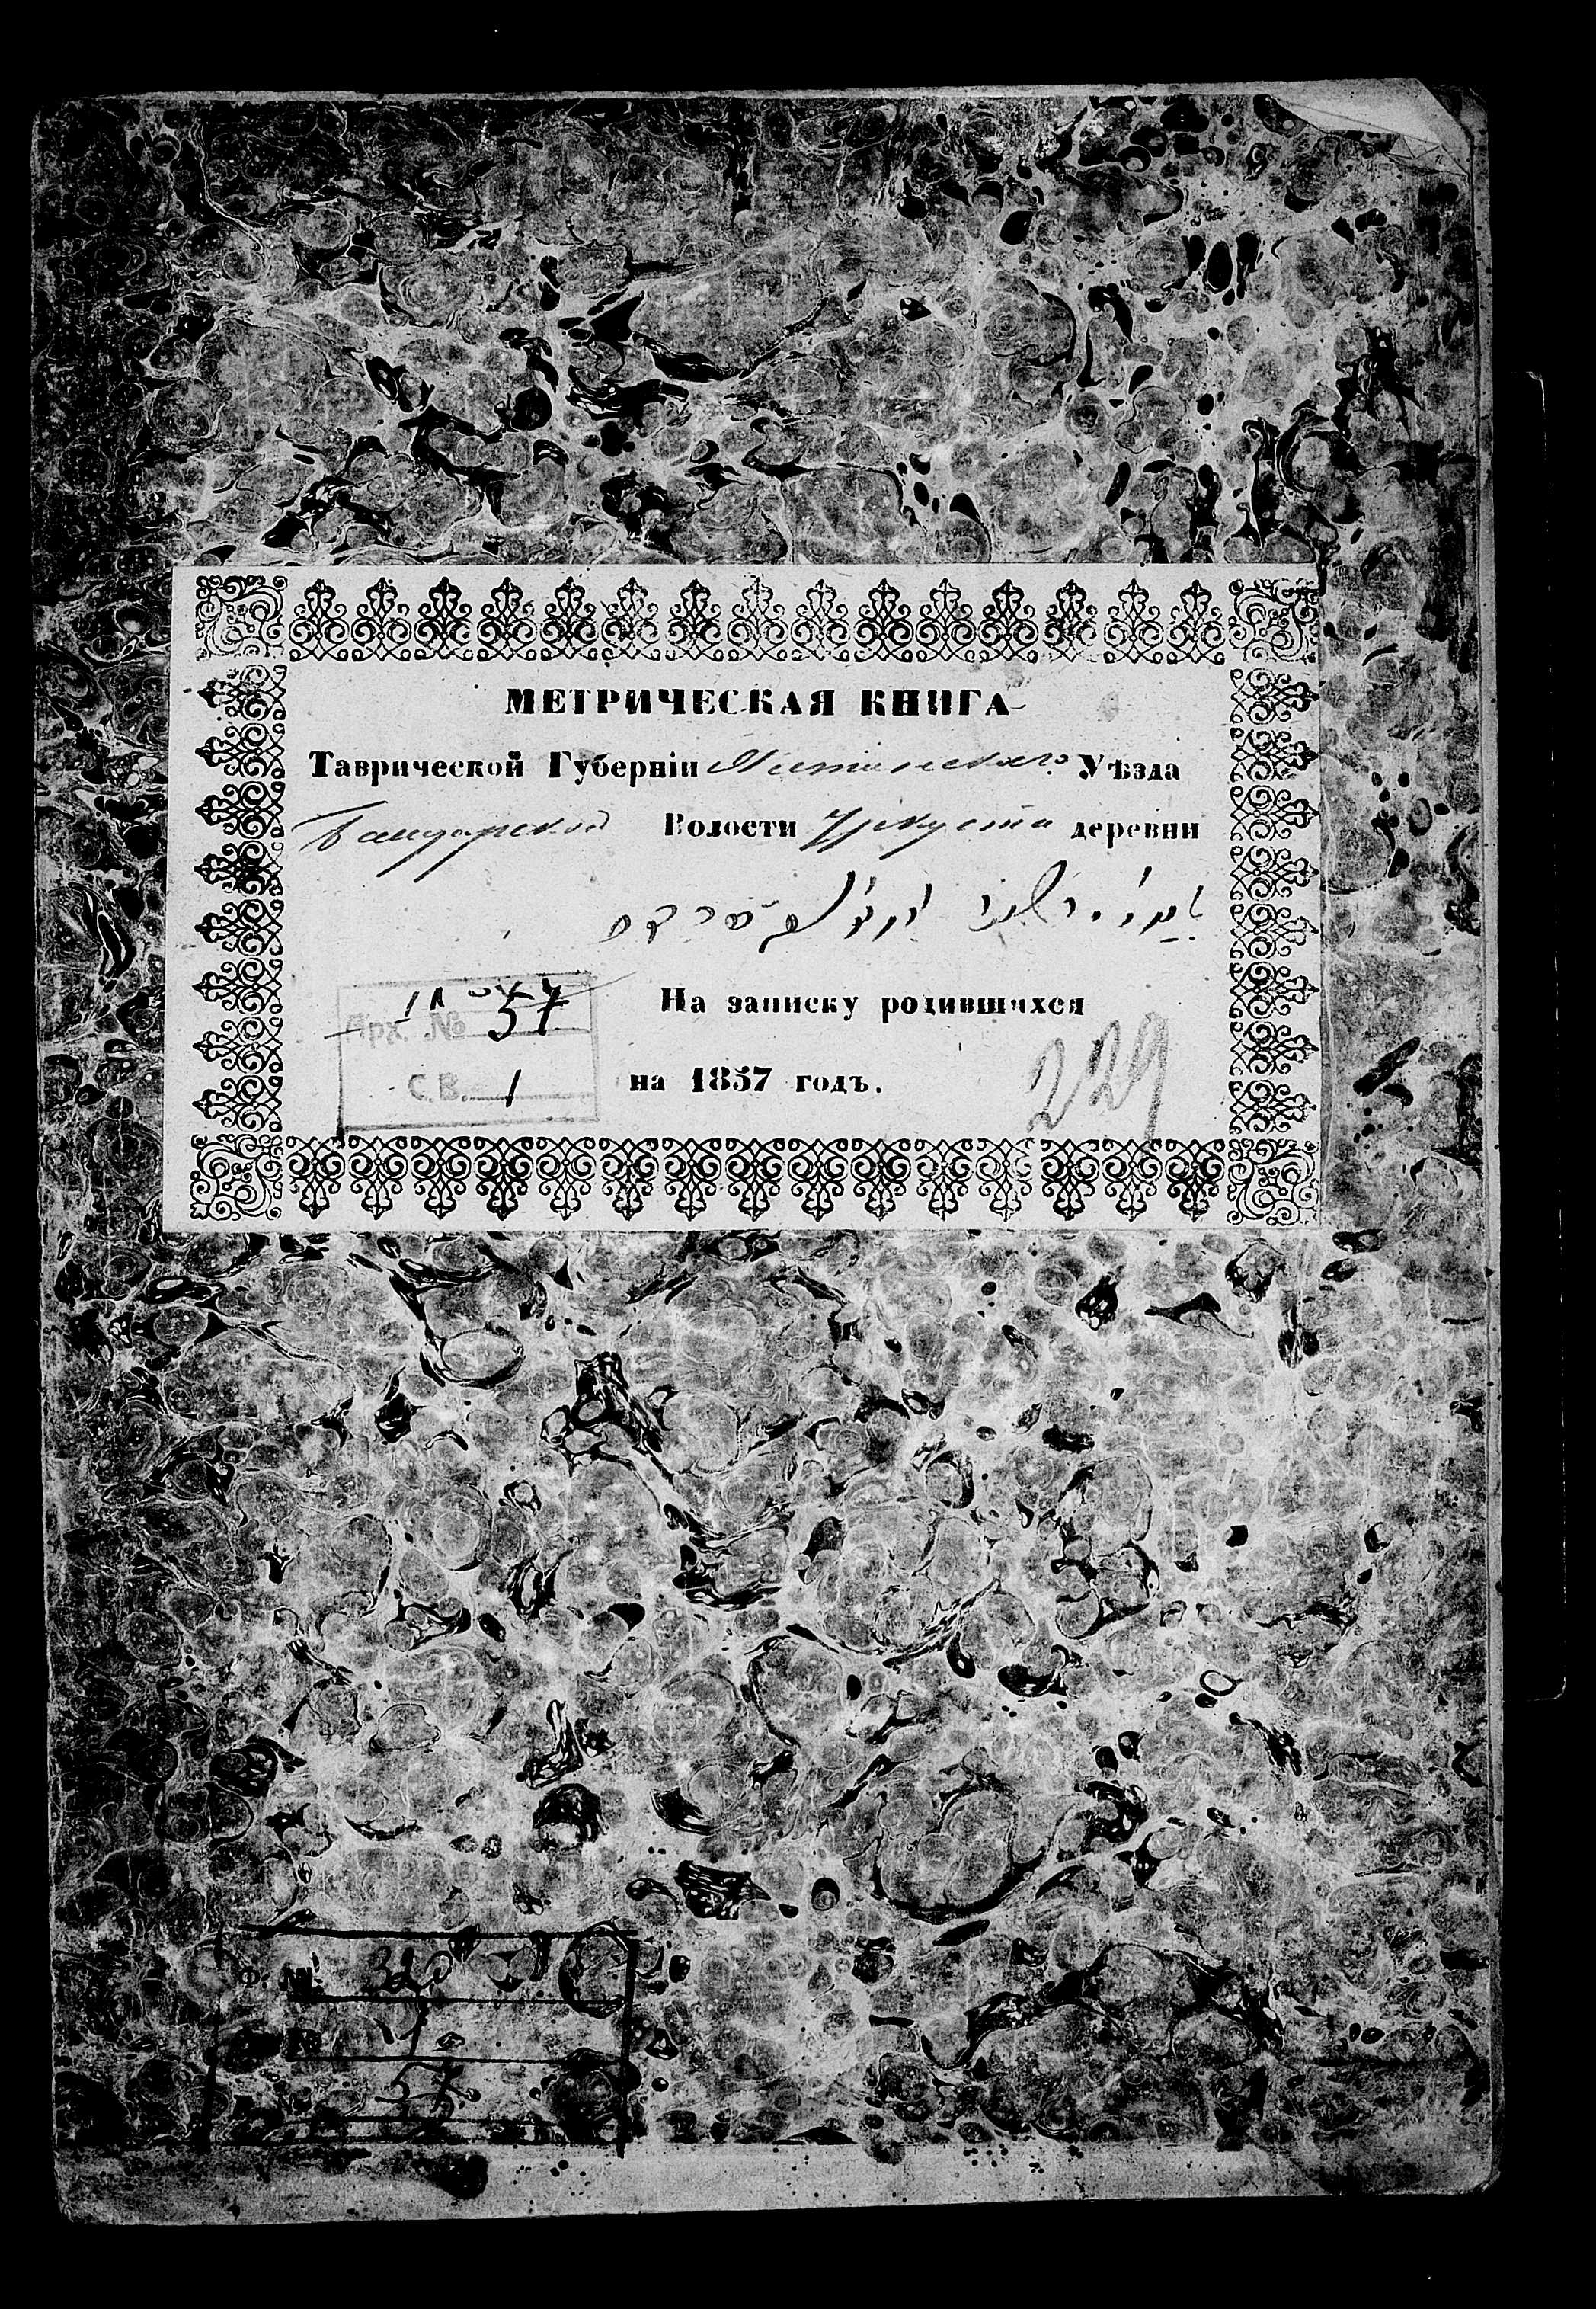 МЕТРИЧЕСКАЯ КНИГА
Таврической Губерніи Ялтинскаго Уѣзда
Байдарской Волости Уркуста деревни
На записку родившихся
Арх. № 57
С.В. 1
на 1857 годъ.
229
Ф. №
1
57